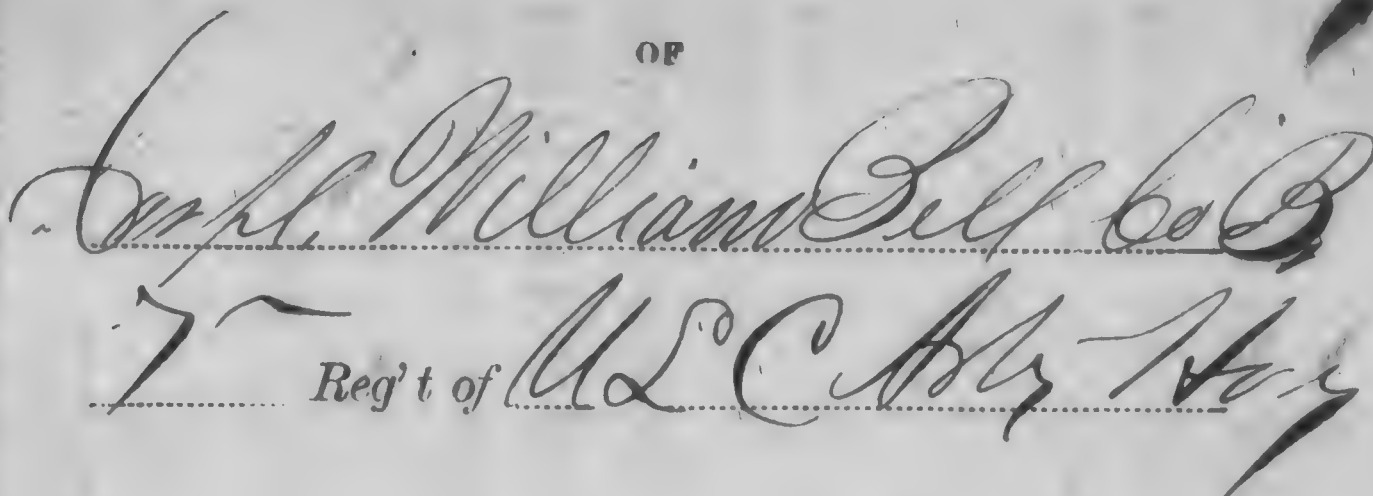 OF
Corpl. William Bell Co B
7 Reg't of U S C Arty Hvy